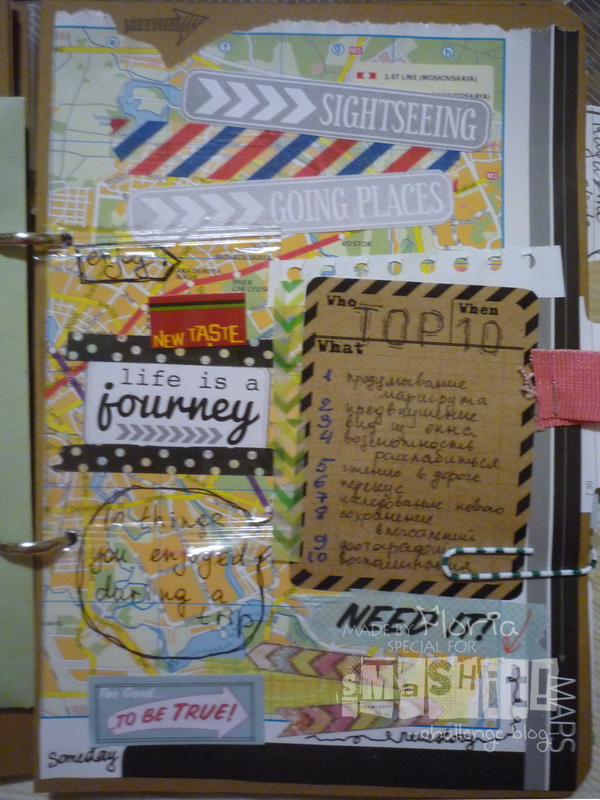 1-ST LINE (MOSKOVSKAYA)
SIGHTSEEING
GOING PLACES
enjoy
NEW TASTE
life is a
journey
Who When
TOP 10
What
1 продумывание
маршрута
2 предвкушение
3 вид из окна
4 возможность
расслабиться
5 чтение в дороге
6 перекус
7 исследование нового
8 сохранение
впечатлений
9 фотографии
10 воспоминания
10 things
you enjoyed
during a
trip
NEED IT!
MADE BY Floria
SPECIAL FOR
SMaSH it!
challenge blog
MAPS
Too Good...
TO BE TRUE!
Someday